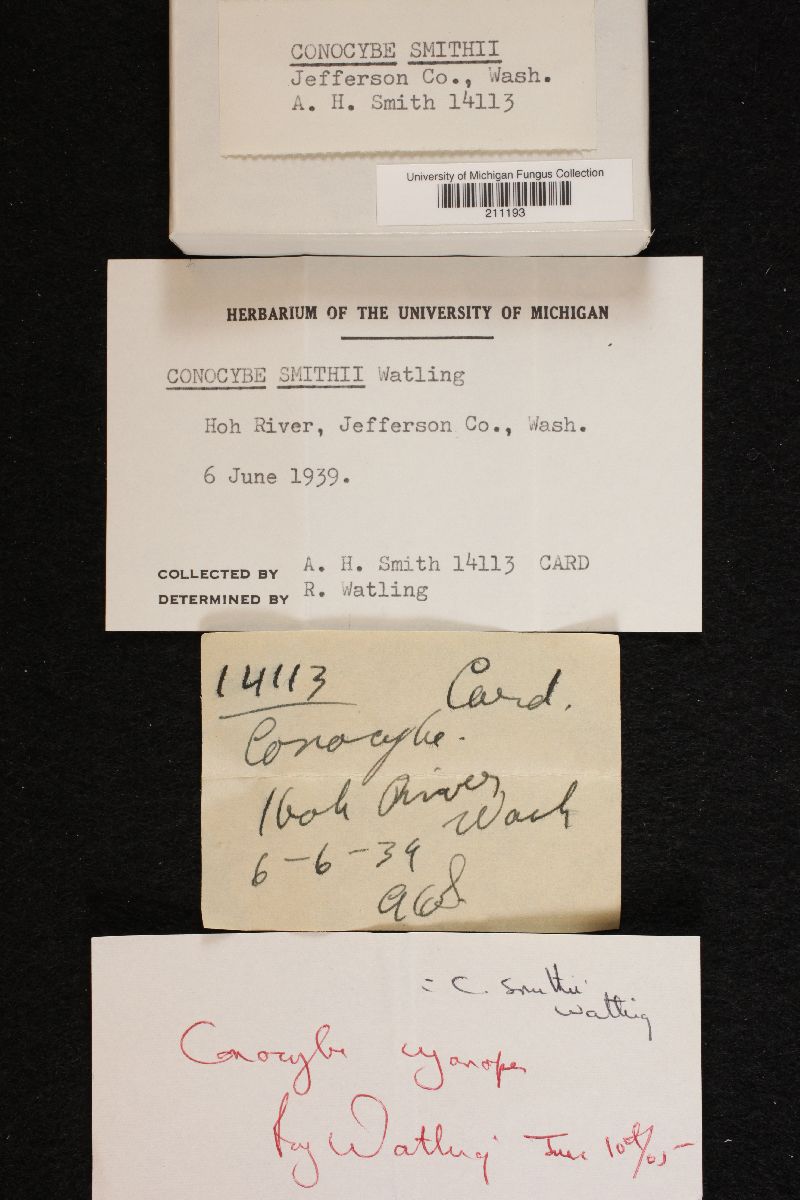 CONOCYBE SMITHII
Jefferson Co., Wash.
A. H. Smith 14113
University of Michigan Fungus Collection
211193
HERBARIUM OF THE UNIVERSITY OF MICHIGAN
CONOCYBE SMITHII Watling
Hoh River, Jefferson Co., Wash.
6 June 1939.
COLLECTED BY A. H. Smith 14113 CARD
DETERMINED BY R. Watling
14113 Card.
Conocybe.
Hoh River
Wash
6-6-39
AHS
= C. Smithii
Watling
Conocybe cyanopus
Roy Watling June